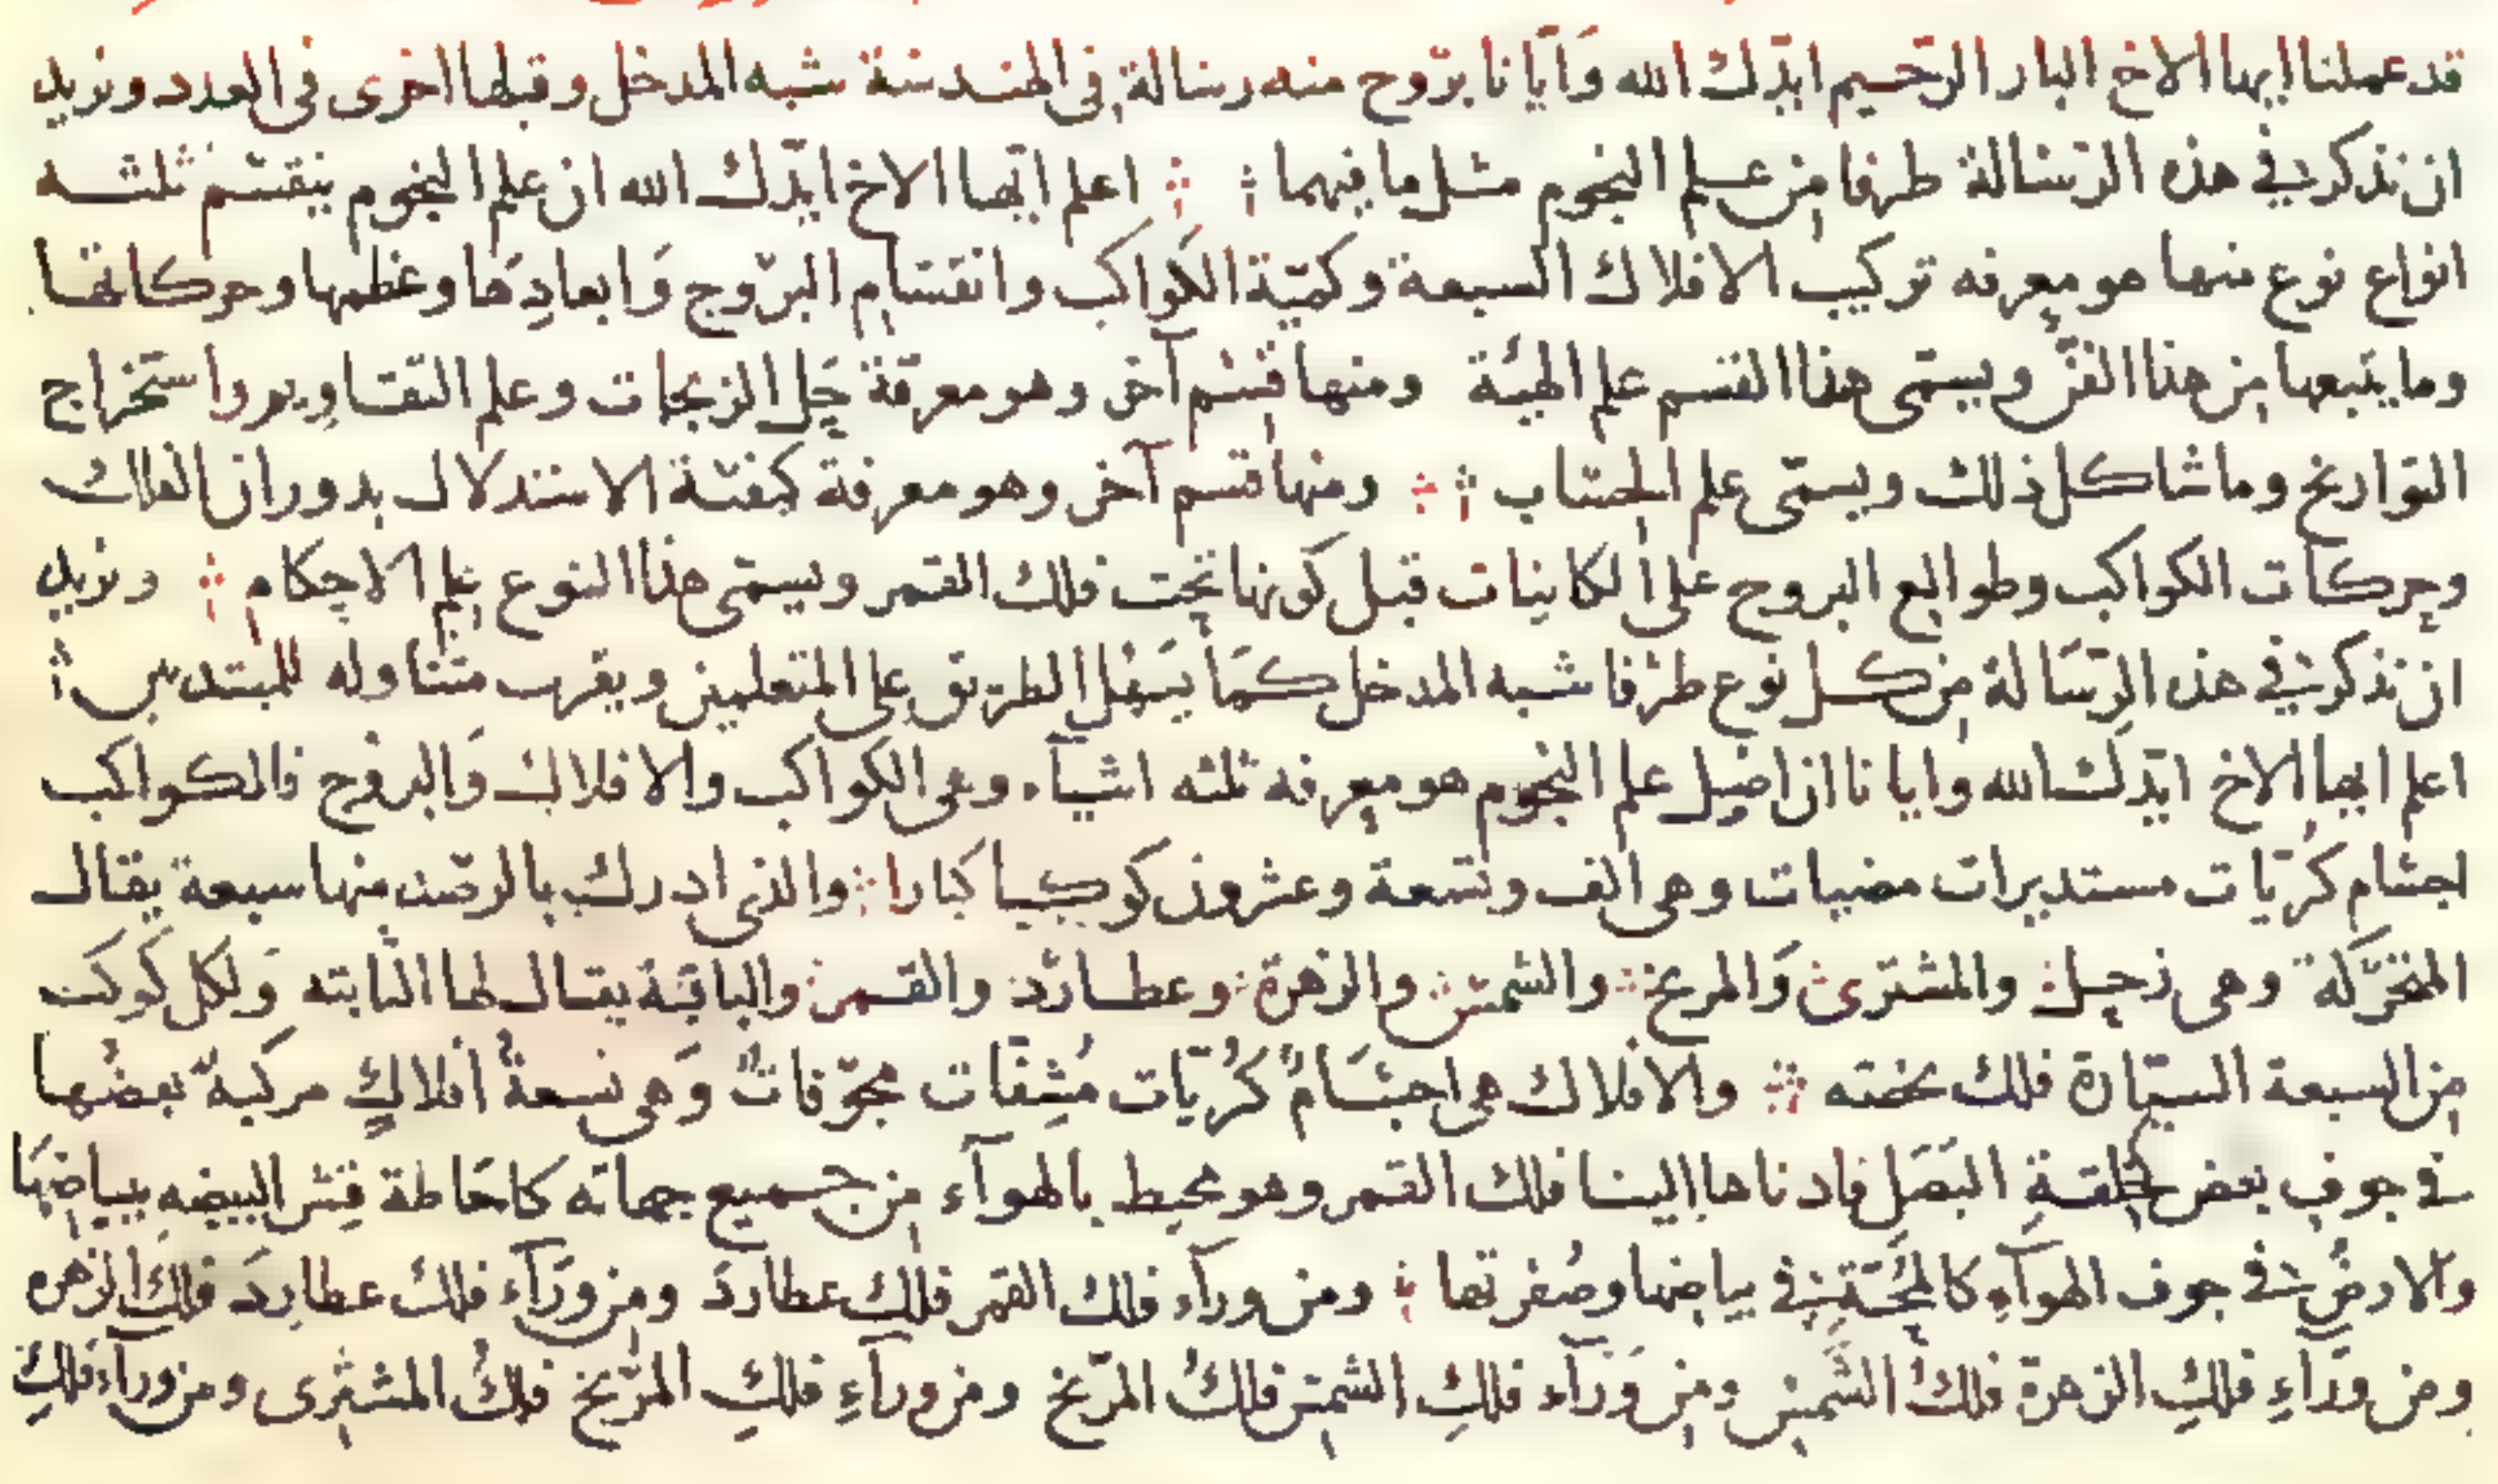 قد عملنا ايها الاخ البار الرّحيم ايّدك الله وَايّانا بروح منه رسالة في الهندسة شبه المدخل وقبلها اخرى في العدد ونريد
ان نذكر في هذه الرّسالة طرفا من علم النجوم مثل ما فيهما ؞ اعلم ايّها الاخ ايّدك الله ان علم النجوم ينقسم ثلثه
انواع نوع منها هو معرفه تركيب الافلاك السبعة وكميّة الكواكب وانقسام البرّوج وَابعادِهَا وعظمها وحركاتها
وما يتبعها من هذا الفنّ ويسمّى هذا القسم علم الهيئة ومنها قسم آخر وهو معرفة حَل الزيجات وعلم التقاويم واستخراج
التواريخ وما شاكل ذلك ويسمّى علم الحسَاب ؞ ومنها قسم آخر وهو معرفة كيفيّة الاستدلال بدوران الفلك
وحركات الكواكب وطوالع البروج على الكاينات قبل كَونها تحت فلك القمر ويسمّى هذا النوع علم الاحكام ؞ ونريد
ان نذكر في هذه الرّسَالة من كل نوع طرْفا شبه المدخل كمَا يَسهُل الطريق على المتعلمين ويقرب متناوله للمبتدين ؞
اعلم ايها الاخ ايّدك الله وايانا ان اصل علم النجوم هو معرفه ثلثه اشيآء وهى الكواكب والافلاك وَالبروج فالكواكب
اجسَام كُريّات مستديرات مضيات وهى الف وتسعة وعشرون كوكبا كبارا ؞ والذى ادرك بالرصد منها سبعة يقال
المتحرّكَة وهى زحل والمشترى وَالمريخ والشمس والزهرة وعطارد والقمر والباقية يقال لها الثابته وَلكل كَوكب
من السبعة السيّارة فلك يختصه ؞ والافلاك هى اجسَامٌ كُريّات مُشِفّات مجوّفاتٌ وَهى تسعةُ افلاكٍ مركبةٌ بعضُها
في جوفِ بعض كحلقةِ البَصَل فادناها الينا فلك القمر وهو محيط بالهوآء من جميع جهاته كاحَاطة قِشر البيضه ببياضِهَا
والارضُ في جوف الهوآءِ كالمُحّة في بياضها وصُفرتها ؞ ومن ورآء فلك القمر فلك عطاردَ ومن ورَآء فلك عطاردَ فلك الزهره
ومن ورَآءِ فلكِ الزهرة فلكُ الشّمس ومن وَرَآء فلكِ الشمس فلكُ المرّيخ ومن ورآءِ فلكِ المرّيخ فلكُ المشترى ومن ورآء فلكِ